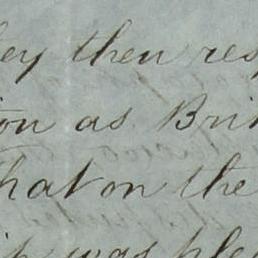 they then res
ion as Bri
that on the
was ple